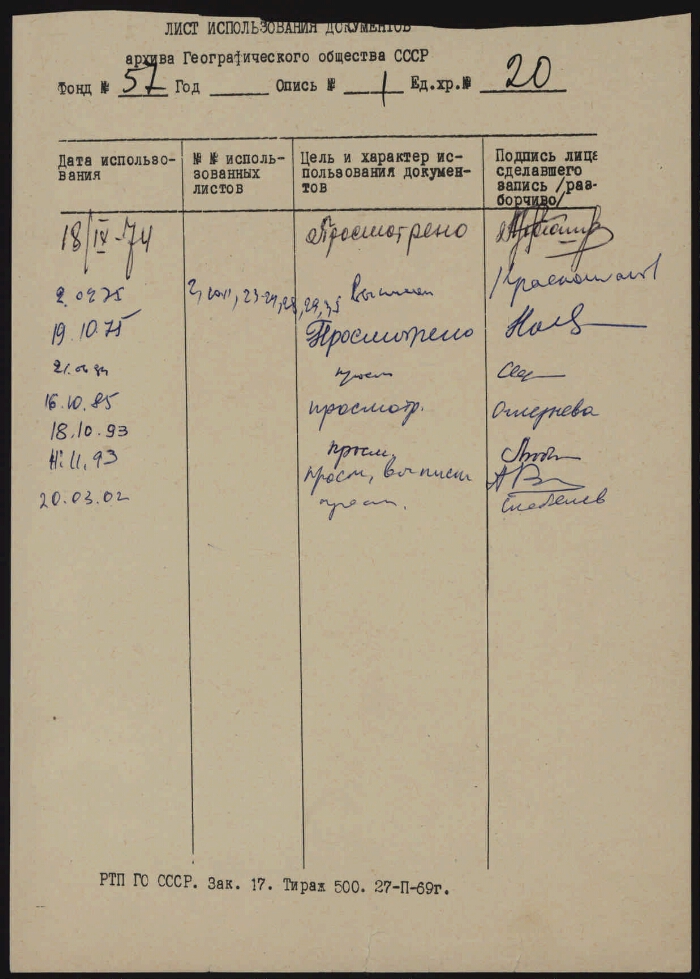 ЛИСТ ИСПОЛЬЗОВАНИЯ ДОКУМЕНТОВ
архива Географического общества СССР
Фонд № 57 Год Опись № 1 Ед.хр.№ 20
Дата использо-
вания
№ № исполь-
зованных
листов
Цель и характер ис-
пользования докумен-
тов
Подпись лица
сделавшего
запись /раз-
борчиво/
18/IX-74 Просмотрено
2.09.75
19.10.75 Просмотрено
просм
16.10.85 просмотр.
18.10.93 просм.
11.11.93 просм, выписки
20.03.02 просм.
РТП ГО СССР. Зак. 17. Тираж 500. 27-П-69г.